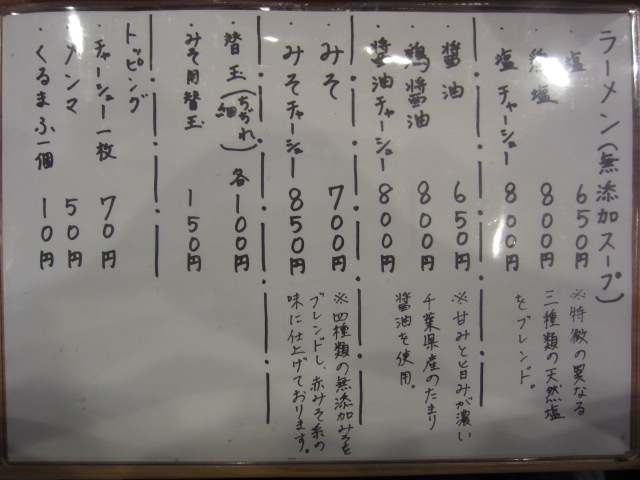 ラーメン(無添加スープ)
・塩 650円
・鶏塩 800円
・塩チャーシュー 800円
※特徴の異なる
三種類の天然塩
をブレンド。
・醤油 650円
・鶏醤油 800円
・醤油チャーシュー 800円
※甘みと旨みが濃い
千葉県産のたまり
醤油を使用。
・みそ 700円
・みそチャーシュー 850円
※四種類の無添加みそを
ブレンドし、赤みそ系の
味に仕上げております。
・替玉(ちぢれ、細) 各100円
・みそ用替玉 150円
トッピング
・チャーシュー一枚 70円
・メンマ 50円
・くるまふ一個 10円